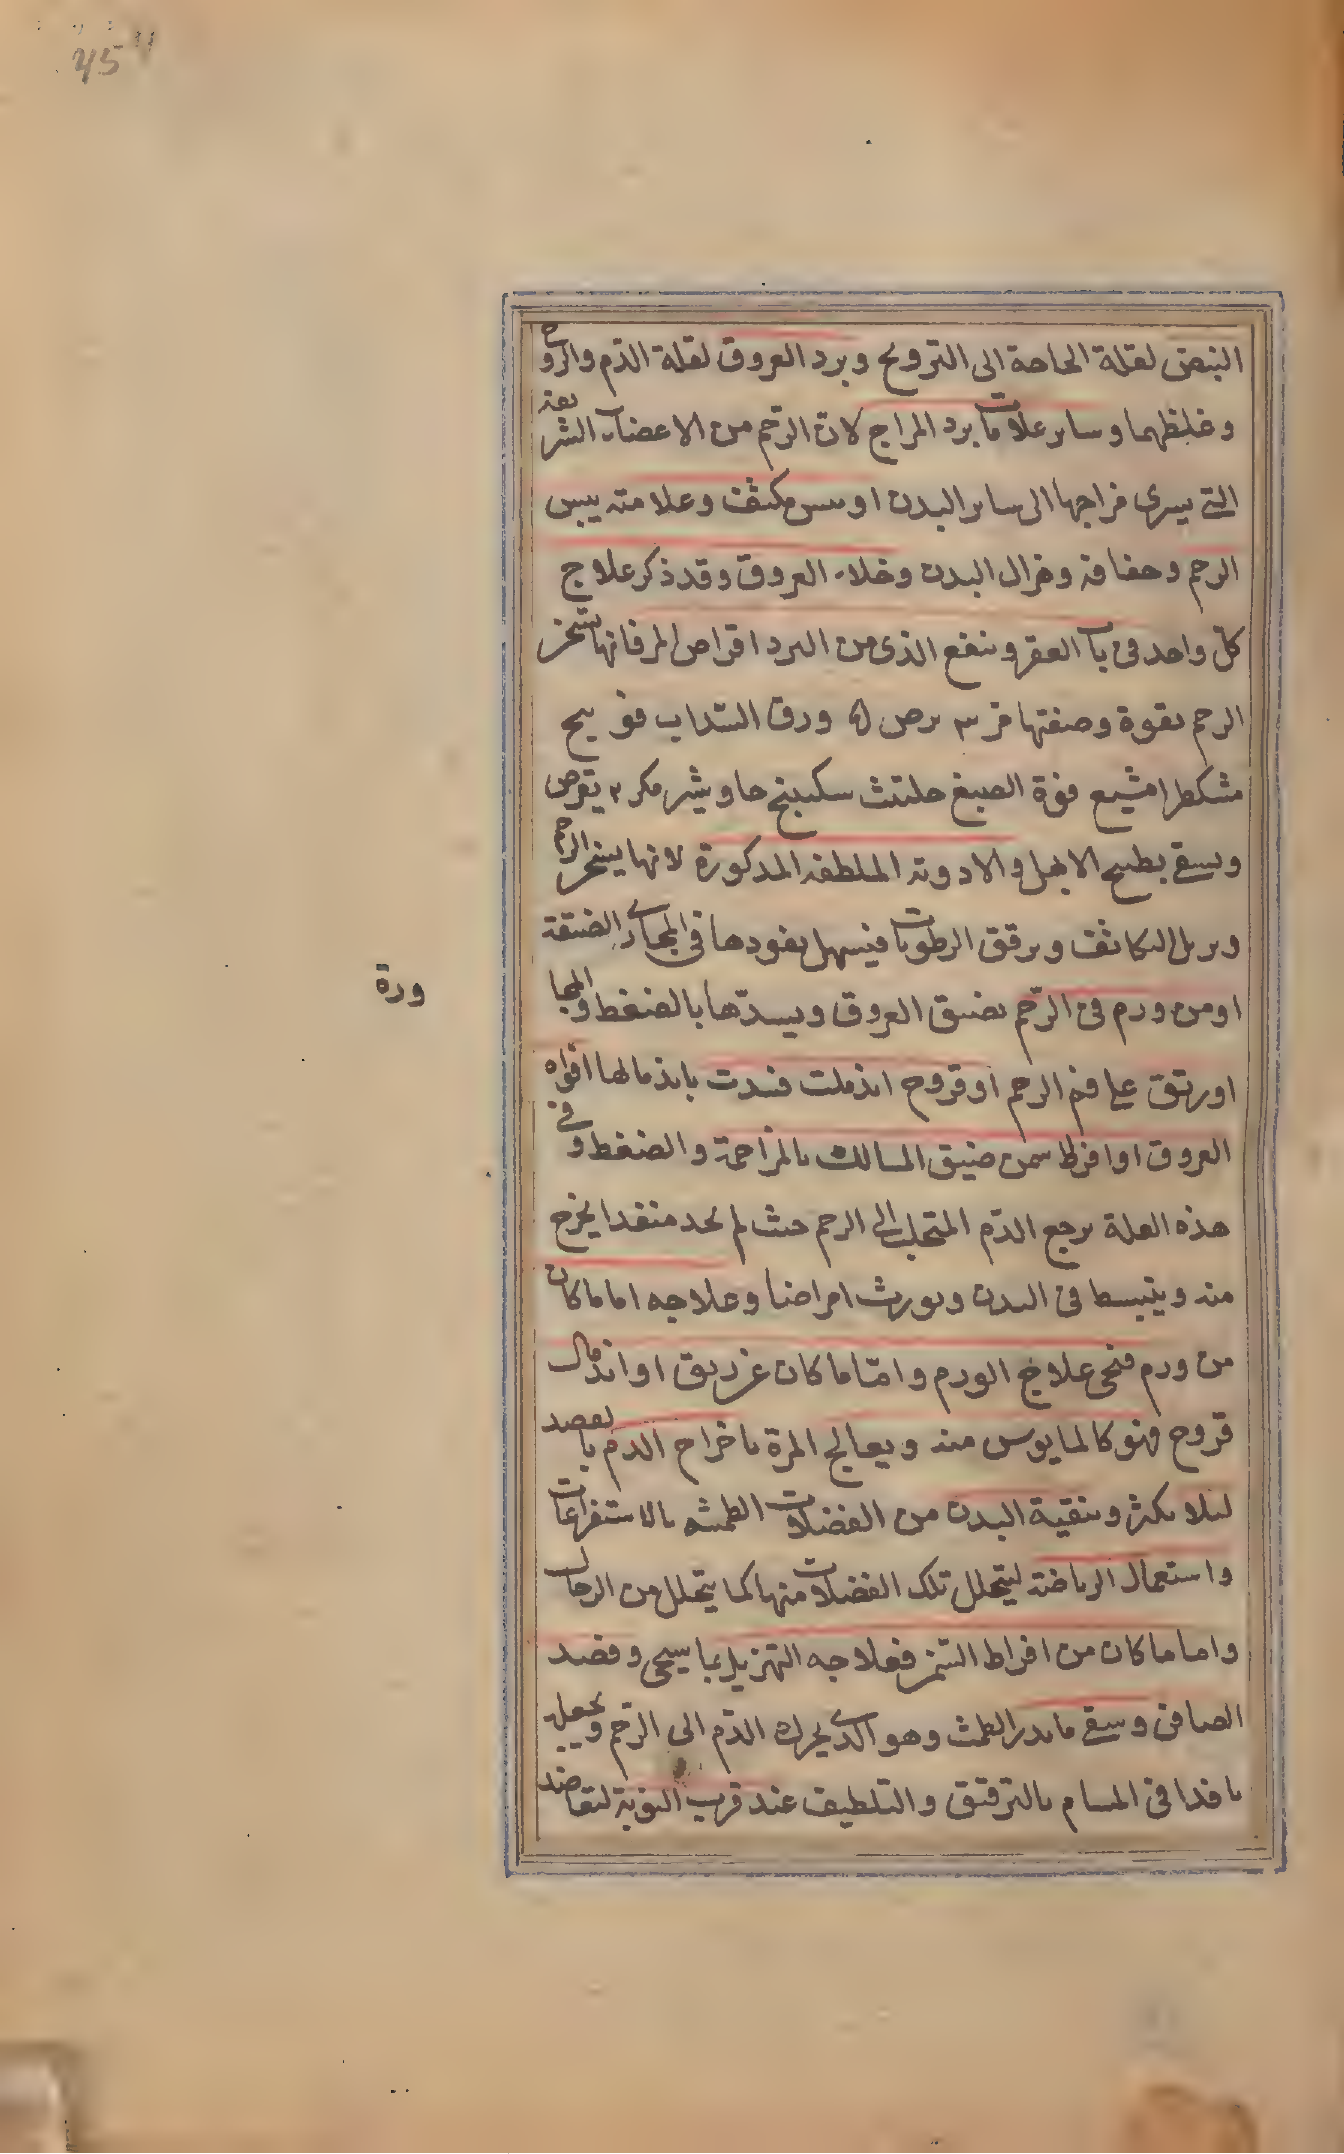 النبض لقلة الحاجة الى الترويح وبرد العروق لقلة الدّم والروح
وغلظهما وساير علامات برد المزاج لان الرّحم من الاعضاء الشريفة
التى يسرى مزاجها الى ساير البدن او يبس مكثف وعلامته يبس
الرحم وجفافه وهزال البدن وخلاء العروق وقد ذكر علاج
كلّ واحد فى باب العقر وينفع الذى من البرد اقراص المر فانها تسخن
الرحم بقوة وصفتها مر ٣ ترمس ۵ ورق السّداب فوتنج
مشكطرامشيع فوّة الصبغ حلتيث سكبينج جاوشير مكر ٢ يقرص
ويسقى بطبيخ الابهل والادوية الملطفة المذكورة لانها يسخن الرّحم
ويزيل التكاثف ويرقق الرطوبات فيسهل نفوذها فى المجارى الضيقة
او من ورم فى الرّحم يضيق العروق ويسدّها بالضغط والمجا
ورة
او رتق على فم الرحم او قروح اندملت فسدت باندمالها افواه
العروق او افراط سمن ضيق المسالك بالمزاحمة والضغط وفى
هذه العلة يرجع الدّم المتحلب الى الرحم حيث لم يجد منفذا يخرج
منه وينبسط فى البدن ويورث امراضا وعلاجه اما ما كان
من ورم فنحى علاج الورم وامّا ما كان عن رتق او اندمال
قروح فهو كالمايوس منه ويعالج المرة باخراج الدم بالفصد
لئلا يكثر وبتنقية البدن من الفضلات الطمثيه بالاستفراغات
واستعمال الرياضة ليتحلل تلك الفضلات منها كما يتحلل من الرجال
واما ما كان من افراط السّمن فعلاجه التهزيل بما سيجى وفصد
الصافن وسقى ما يدر الطمث وهو الذى يحرك الدّم الى الرّحم ويجعله
نافذا فى المسام بالترقيق والتلطيف عند قرب النوبة لتقاضد